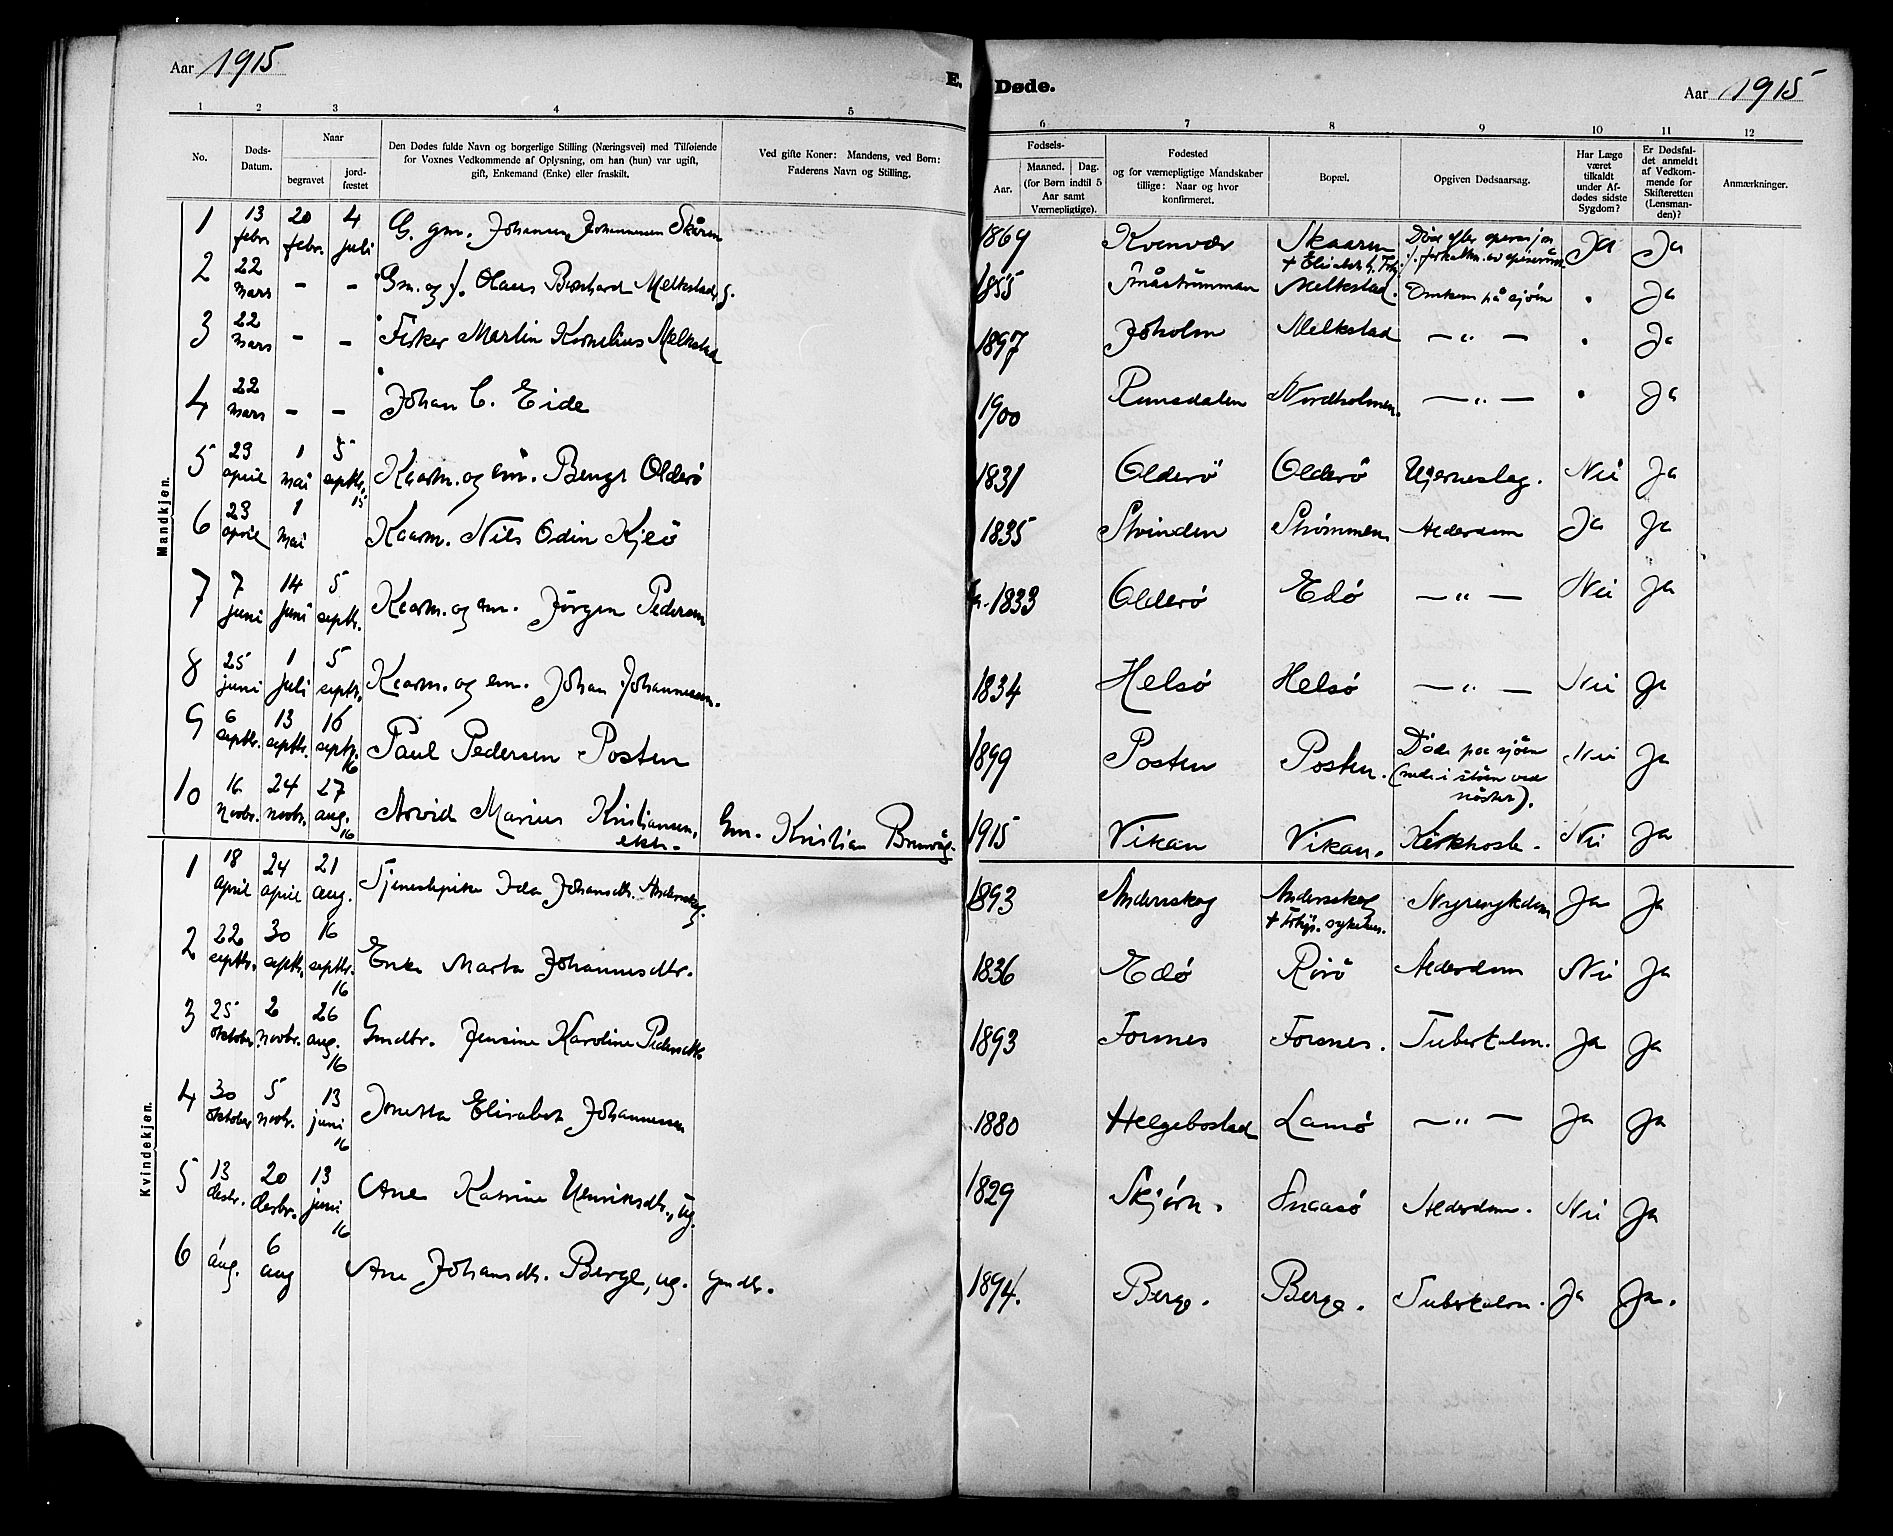 Aar 1915
E. Døde.
Aar 1915
1 2 3 4 5 6 7 8 9 10 11 12
No.
Døds-Datum.
Naar
begravet
jord-fæstet
Den Dødes fulde Navn og borgerlige Stilling (Næringsvei) med Tilføiende
for Voxnes Vedkommende af Oplysning, om han (hun) var ugift,
gift, Enkemand (Enke) eller fraskilt.
Ved gifte Koner: Mandens, ved Børn:
Faderens Navn og Stilling.
Fødsels-
Aar.
Maaned. Dag.
(for Børn indtil 5
Aar samt
Værnepligtige).
Fødested
og for værnepligtige Mandskaber
tillige: Naar og hvor
konfirmeret.
Bopæl.
Opgiven Dødsaarsag.
Har Læge
været
tilkaldt
under Af-
dødes sidste
Sygdom?
Er Dødsfal-
det anmeldt
af Vedkom-
mende for
Skifteretten
(Lensman-
den)?
Anmærkninger.
Mandkjøn.
1 13 febr. 20 febr. 4 juli G. gm. Johansen Skåren 1869 Kvenvær Skaaren Død efter Ja Ja
2 22 mars - - Gm. og f. Olaus Bernhard Melkstad, g. 1855 Småstrømman Melkstad. Omkom på sjöen . Ja
3 22 mars - - Fisker Martin Kornelius Melkstad 1897 Joholm Melkstad — " — . Ja
4 22 mars - - Johan C. Eide 1900 Romsdalen Nordholmen. — " — . Ja
5 23 april 1 mai 5 septbr. 15 Kaarm. og em. Bengt Olderö 1831 Olderö Olderö Hjerneslag. Nei Ja
6 23 april 1 mai Kaarm. Nils Odin Kjeö 1835 Strömmen Alderdom Ja Ja
7 7 juni 14 juni 5 septbr. Kaarm. og em. Jörgen Pedersen 1833 Olderö Edö — " — Nei Ja
8 25 juni 1 juli 5 septbr. Kaarm. og em. Johan Johannessen. 1834 Helsö Helsö — " — Nei Ja
9 6 septbr. 13 septbr. 16 septbr. 16 Paul Pedersen Posten 1899 Posten Posten. Døde paa sjöen Nei Ja
(nede i stöen ved
nöstet).
10 16 novbr. 24 novbr. 27 aug. 16 Arvid Marius Kristiansen, ekte. Gm. Kristian 1915 Vikan Vikan. Kikhoste. Nei Ja
Kvindekjøn.
1 18 april 24 april 21 aug. Tjenestepike Ida Johansdtr. Anderskog. 1893 Anderskog Anderskog Nyresykdom Ja Ja
2 22 septbr. 30 septbr. 16 septbr. 16 Enke Marta Johannesdtr. 1836 Edö Alderdom Nei Ja
3 25 oktober 2 novbr. 26 aug. 16 Gmdtr. Jensine Karoline Pedersdtr. 1893 Forsnes Forsnes. Tuberkulose. Ja Ja
4 30 oktober 5 novbr. 13 juni 16 Jonetta Elisabet Johannessen 1880 Helgebostad Lamö — " — Ja Ja
5 13 desbr. 20 desbr. 13 juni 16 Ane Katrine Henriksdtr., ug. 1829 Skjörn. Smaasö Alderdom. Nei Ja
6 aug. 6 aug Ane Johansdtr. Berge, ug. gmdtr. 1894. Berge. Berge. Tuberkulose. Ja Ja.